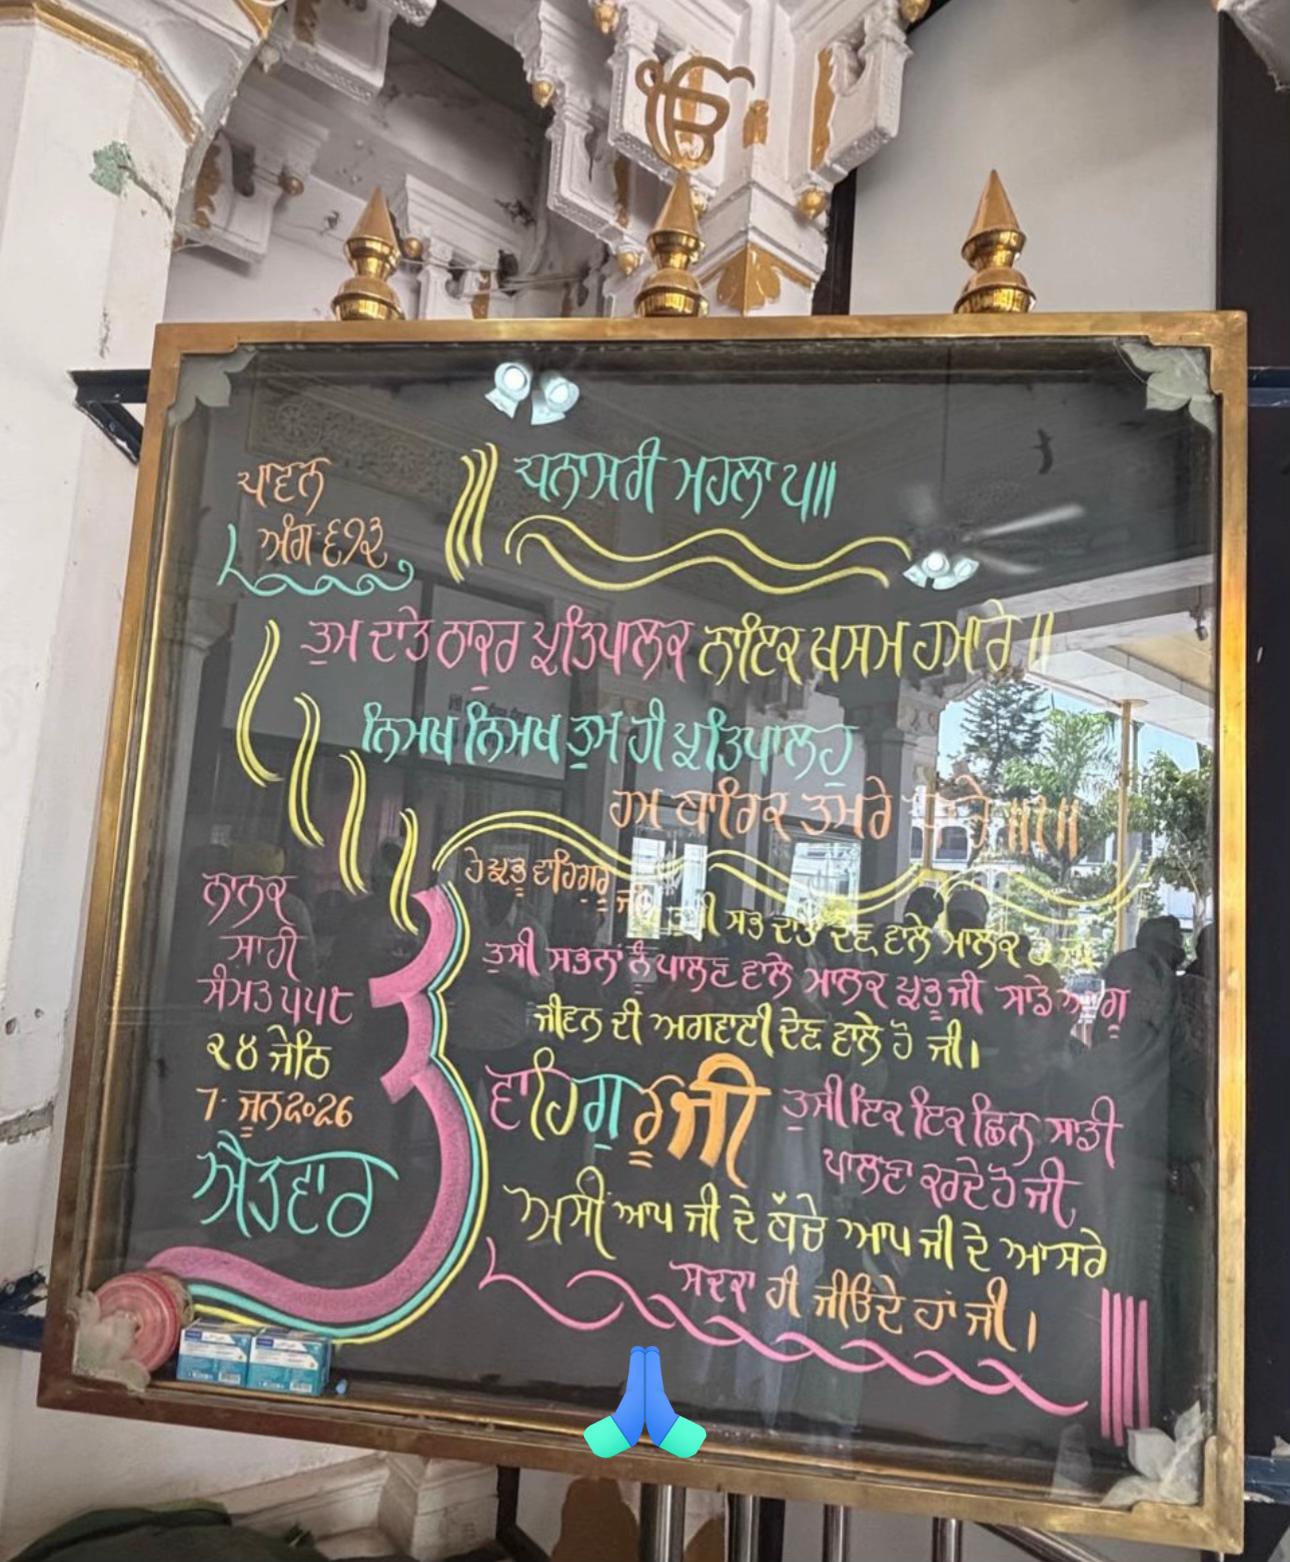 ੴ
ਪਾਵਨ
ਅੰਗ ੬੭੩
ਧਨਾਸਰੀ ਮਹਲਾ ੫॥
ਤੁਮ ਦਾਤੇ ਠਾਕੁਰ ਪ੍ਰਤਿਪਾਲਕ ਨਾਇਕ ਖਸਮ ਹਮਾਰੇ॥
ਨਿਮਖ ਨਿਮਖ ਤੁਮ ਹੀ ਪ੍ਰਤਿਪਾਲਹੁ
ਹਮ ਬਾਰਿਕ ਤੁਮਰੇ ਧਾਰੇ॥੧॥
ਹੇ ਪ੍ਰਭੂ ਵਾਹਿਗੁਰੂ ਜੀ ਸਭ ਦਾਤਾਂ ਦੇਣ ਵਾਲੇ ਮਾਲਕ ਹੋ
ਤੁਸੀ ਸਭਨਾਂ ਨੂੰ ਪਾਲਣ ਵਾਲੇ ਮਾਲਕ ਪ੍ਰਭੂ ਜੀ ਸਾਡੇ ਆਗੂ
ਜੀਵਨ ਦੀ ਅਗਵਾਈ ਦੇਣ ਵਾਲੇ ਹੋ ਜੀ।
ਵਾਹਿਗੁਰੂ ਜੀ ਤੁਸੀ ਇਕ ਇਕ ਛਿਨ ਸਾਡੀ
ਪਾਲਣਾ ਕਰਦੇ ਹੋ ਜੀ
ਅਸੀਂ ਆਪ ਜੀ ਦੇ ਬੱਚੇ ਆਪ ਜੀ ਦੇ ਆਸਰੇ
ਸਦਕਾ ਹੀ ਜੀਉਂਦੇ ਹਾਂ ਜੀ।
ਨਾਨਕ
ਸ਼ਾਹੀ
ਸੰਮਤ ੫੫੮
੨੪ ਜੇਠਿ
7- ਜੂਨ 2026
ਐਤਵਾਰ